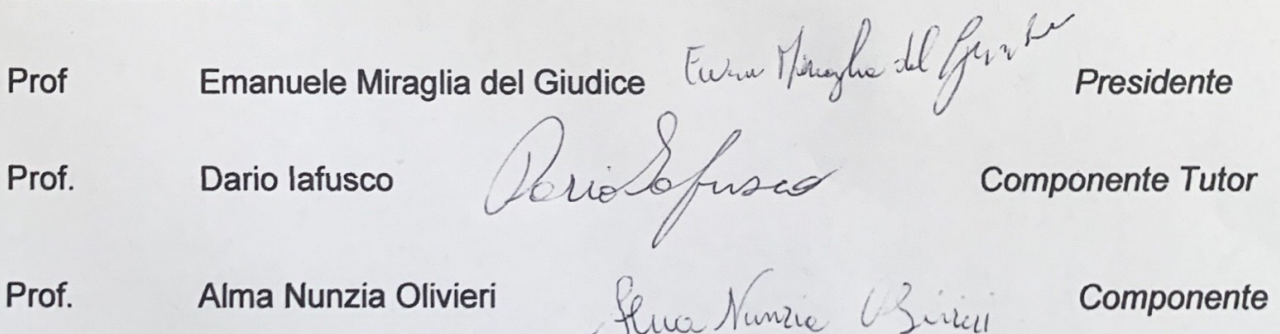 Prof Emanuele Miraglia del Giudice Miraglia del Presidente
Prof. Dario Iafusco Dario Iafusco Componente Tutor
Prof. Alma Nunzia Olivieri Alma Nunzia Olivieri Componente